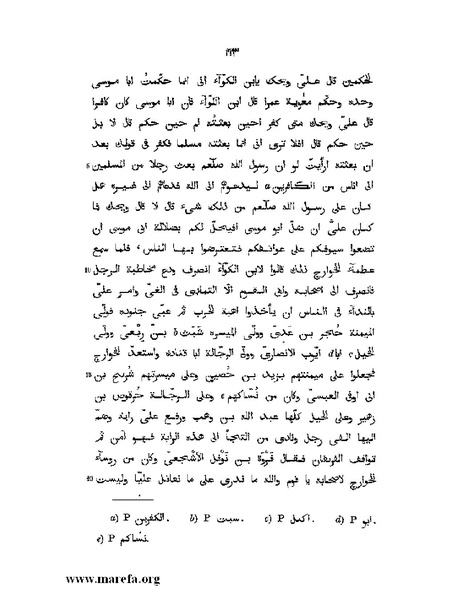 ٢٢٣
للحكمين قال علىّ ويحك يابن الكوّآء انى انما حكّمتُ ابا موسى
وحده وحكّم معوية عمرا قال ابن الكوّآء فان ابا موسى كان كافرا
قال علىّ ويحك متى كفر أحين بعثتُه لم حين حكم قال لا بل
حين حكم قال افلا ترى انى انما بعثته مسلما فكفر فى قولك بعد
5 ان بعثته ارأيتَ لو ان رسول الله صلّعم بعث رجلا من المسلمين
الى اناس من الكافرينa ليدعوهم الى الله فدعاهم الى غيره هل
كان على رسول الله صلّعم من ذلك شىء قال لا قال ويحك فما
كان علىَّ ان ضلّ ابو موسى افيحلّ لكم بضلالة ابى موسى ان
تضعوا سيوفكم على عواتقكم فتعترضوا بها الناس، فلما سمع
10 عظمآء الخوارج ذلك قالوا لابن الكوّآء انصرف ودع مخاطبة الرجل
فانصرف الى اصحابه وابى القوم الّا التمادى فى الغىّ وامر علىّ
بالندآء فى الناس ان يأخذوا اهبة الحرب ثم عبّى جنوده فولّى
الميمنة حُجر بن عدىّ وولّى الميسرة شبثb بن ربْعىّ وولّى
الخيلc اباd ايّوب الانصارىّ وولّى الرجّالة ابا قتادة واستعدّ الخوارج
15 فجعلوا على ميمنتهم يزيد بن حُصين وعلى ميسرتهم شُريح بن
ابى اوفى العبسىّ وكان من نُسّاكهمe وعلى الرجّالة حُرقوص بن
زهير وعلى الخيل كلّها عبد الله بن وهب ورفع علىّ راية وضمّ
اليها الفى رجل ونادى من التجأ الى هذه الراية فهو آمن ثم
تواقف الفريقان فقال فَرْوة بن نَوْفل الأشجعىّ وكان من رؤساء
20 الخوارج لاصحابه يا قوم والله ما ندرى على ما نقاتل عليّا وليست
a) P الكفرين. b) P سبت. c) P اكمل. d) P ابو.
e) P نساكم.
www.marefa.org